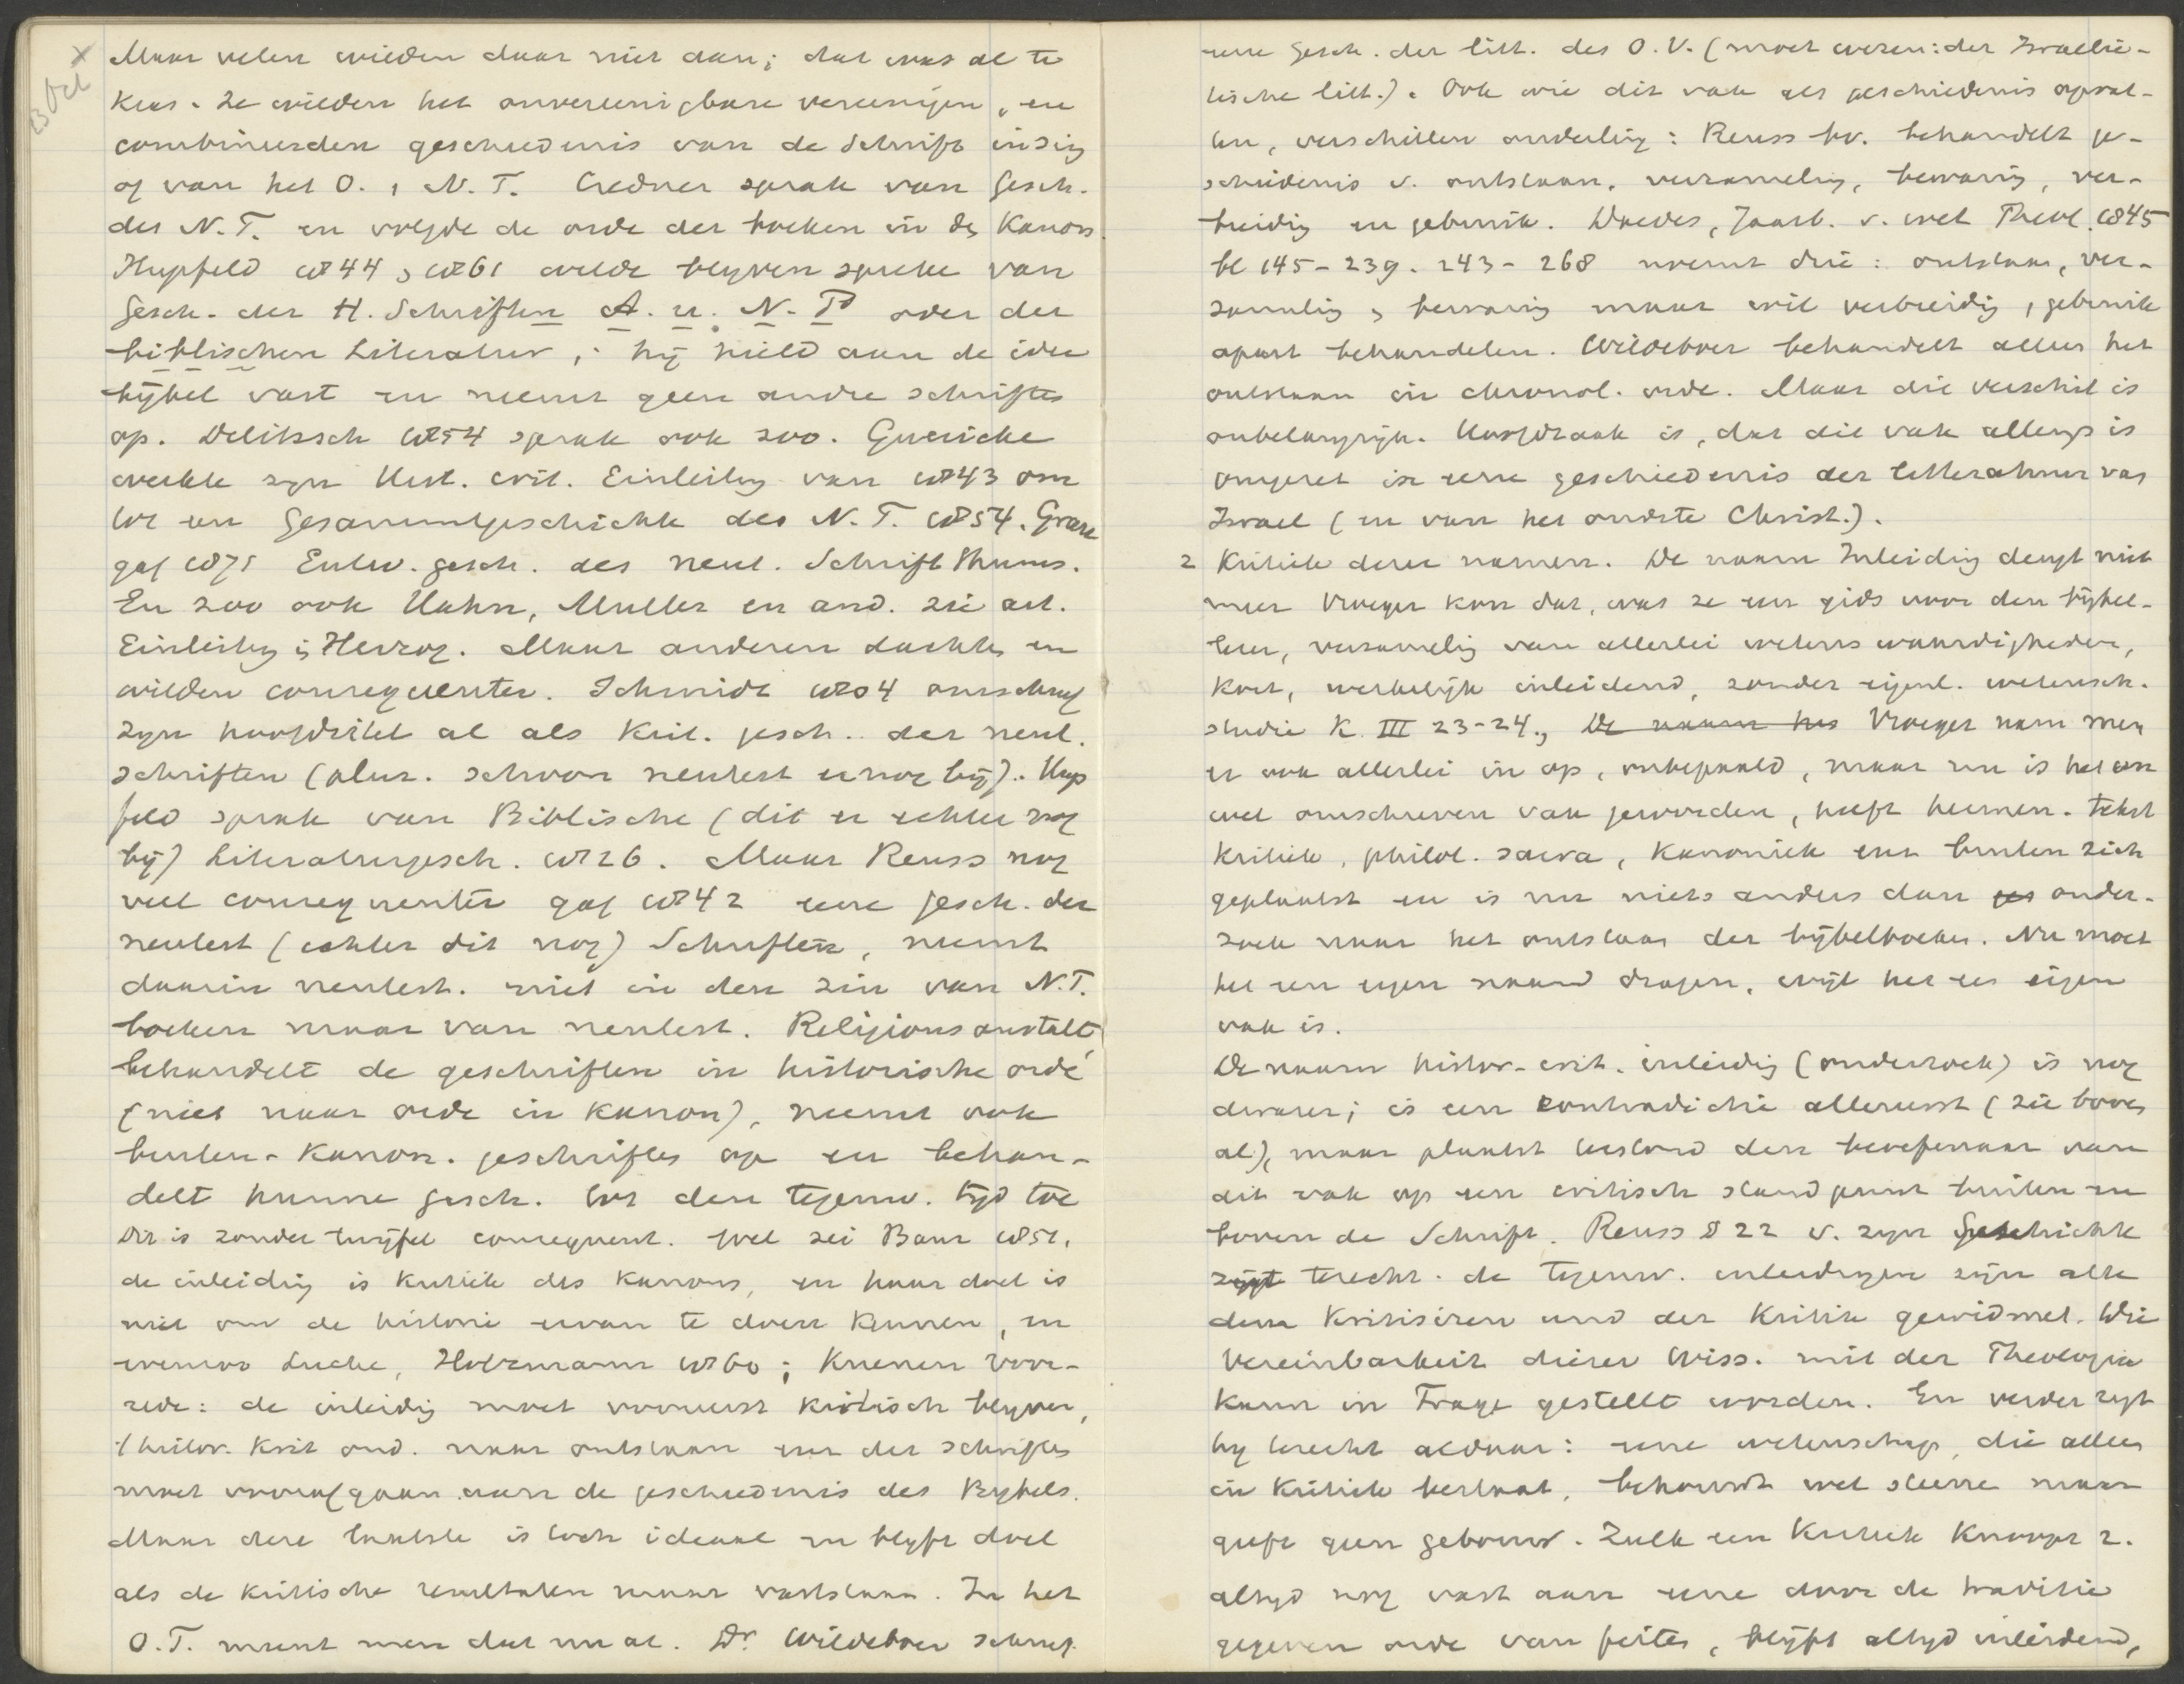 23 Oct
Maar velen wilden daar niet aan; dat was al te
kras. Ze wilden het onvereenigbare vereenigen, en
combineerden geschiedenis van de Schrift inzig
of van het O. , N. T. Credner sprak van Gesch.
des N. T. en volgde de orde der boeken in de Kanon.
Hupfeld 1844 , 1861 wilde blijven spreke van
Gesch. der H. Schriften A. u. N. T. oder der
biblischen Literatur, : hij hield aan de idee
bijbel vast en neemt geen andre schriften
op. Delitzsch 1854 sprak ook zoo. Guericke
werkte zijn Hist. crit. Einleitg van 1843 om
tot een Gesammtgeschichte des N. T. 1854. Grau
gaf 1871 Entw. gesch. des neut. Schriftthums.
En zoo ook Hahn, Muller en and. zie art.
Einleitg in Herzog. Maar anderen dachten en
wilden consequenter. Schmidt 1804 omschreef
zijn hoofdtitel al als Krit. gesch. der neut.
Schriften (alzo. schoon neutest er nog bij). Hup
feld sprak van Biblische (dit er echter nog
bij) Literaturgesch. 1826. Maar Reuss nog
veel consequenter gaf 1842 eene gesch. der
neutest (echter dit nog) Schriften, neemt
daarin neutest. niet in den zin van N.T.
boeken maar van neutest. Religionsanstalt,
behandelt de geschriften in historische orde
(niet naar orde in kanon), neemt ook
buiten-Kanon. geschriften op en behan-
delt hunne gesch. tot den tegenw. tijd toe
Dit is zonder twijfel consequent. Wel zei Baur 1851.
de inleidig is kritiek des Kanons, en haar doel is
niet om de historie ervan te doen kennen, en
evenzoo Lucke, Holtzmann 1860; Kuenen voor-
rede: de inleidig moet vooreerst kritisch blijven,
't histor. krit ond. naar ontstaan enz der schriften
moet voorafgaan aan de geschiedenis des Bijbels.
Maar deze laatste is toch ideaal en blijft doel
als de kritische resultaten maar vaststaan. In het
O.T. meent men dat nu al. Dr. Wildeboer schreef
eene Gesch. der litt. des O. V. (moet wezen: der Israelie-
tische litt.). Ook wie dit vak als geschiedenis opvat-
ten, verschillen onderling: Reuss bv. behandelt ge-
schiedenis v. ontstaan, verzamelig, bewarig, ver-
breidig en gebruik. Doedes, Jaarb. v. wet Theol. 1845
bl 145-239. 243-268 noemt drie: ontstaan, ver-
zamelig , bewarig maar wil verbreidig , gebruik
apart behandelen. Wildeboer behandelt alleen het
ontstaan in chronol. orde. Maar die verschil is
onbelangrijk. Hoofdzaak is, dat dit vak allengs is
omgezet in eene geschiedenis der letteratuur van
Israel (en van het oudste Christ.).
2 Kritiek dezer namen. De naam Inleidig deugt niet
meer Vroeger kon dat, was ze een gids voor den bijbel-
lezer, verzamelig van allerlei wetenswaardigheden,
kort, werkelijk inleidend, zonder eigenl. wetensch.
studie K. III 23-24., De naam het Vroeger nam men
er ook allerlei in op, onbepaald, maar nu is het een
wel omschreven vak geworden, heeft hermen. tekst
kritiek, philol. sacra, Kanoniek enz buiten zich
geplaatst en is nu niets anders dan ges onder-
zoek naar het ontstaan der bijbelboeken. Nu moet
het een eigen naam dragen, wijl het een eigen
vak is.
De naam histor-crit. inleidig (onderzoek) is nog
dwazer; is een contradictie allereerst (zie boven
al), maar plaatst terstond den beoefenaar van
dit vak op een critisch standpunt buiten en
boven de Schrift. Reuss § 22 v. zijn Geschichte
zegt terecht. de tegenw. inleidingen zijn alle
dem Kritisiren und der Kritik gewidmet. Die
Vereinbarkeit dieser Wiss. mit der Theologie
kann in Frage gestellt worden. En verder zegt
hij terecht aldaar: eene wetenschap, die alleen
in Kritiek bestaat, behoudt wel steene maar
geeft geen gebouw. Zulk een Kritiek knoopt z.
altijd nog vast aan eene door de traditie
gegeven orde van feiten, blijft altijd inleidend,